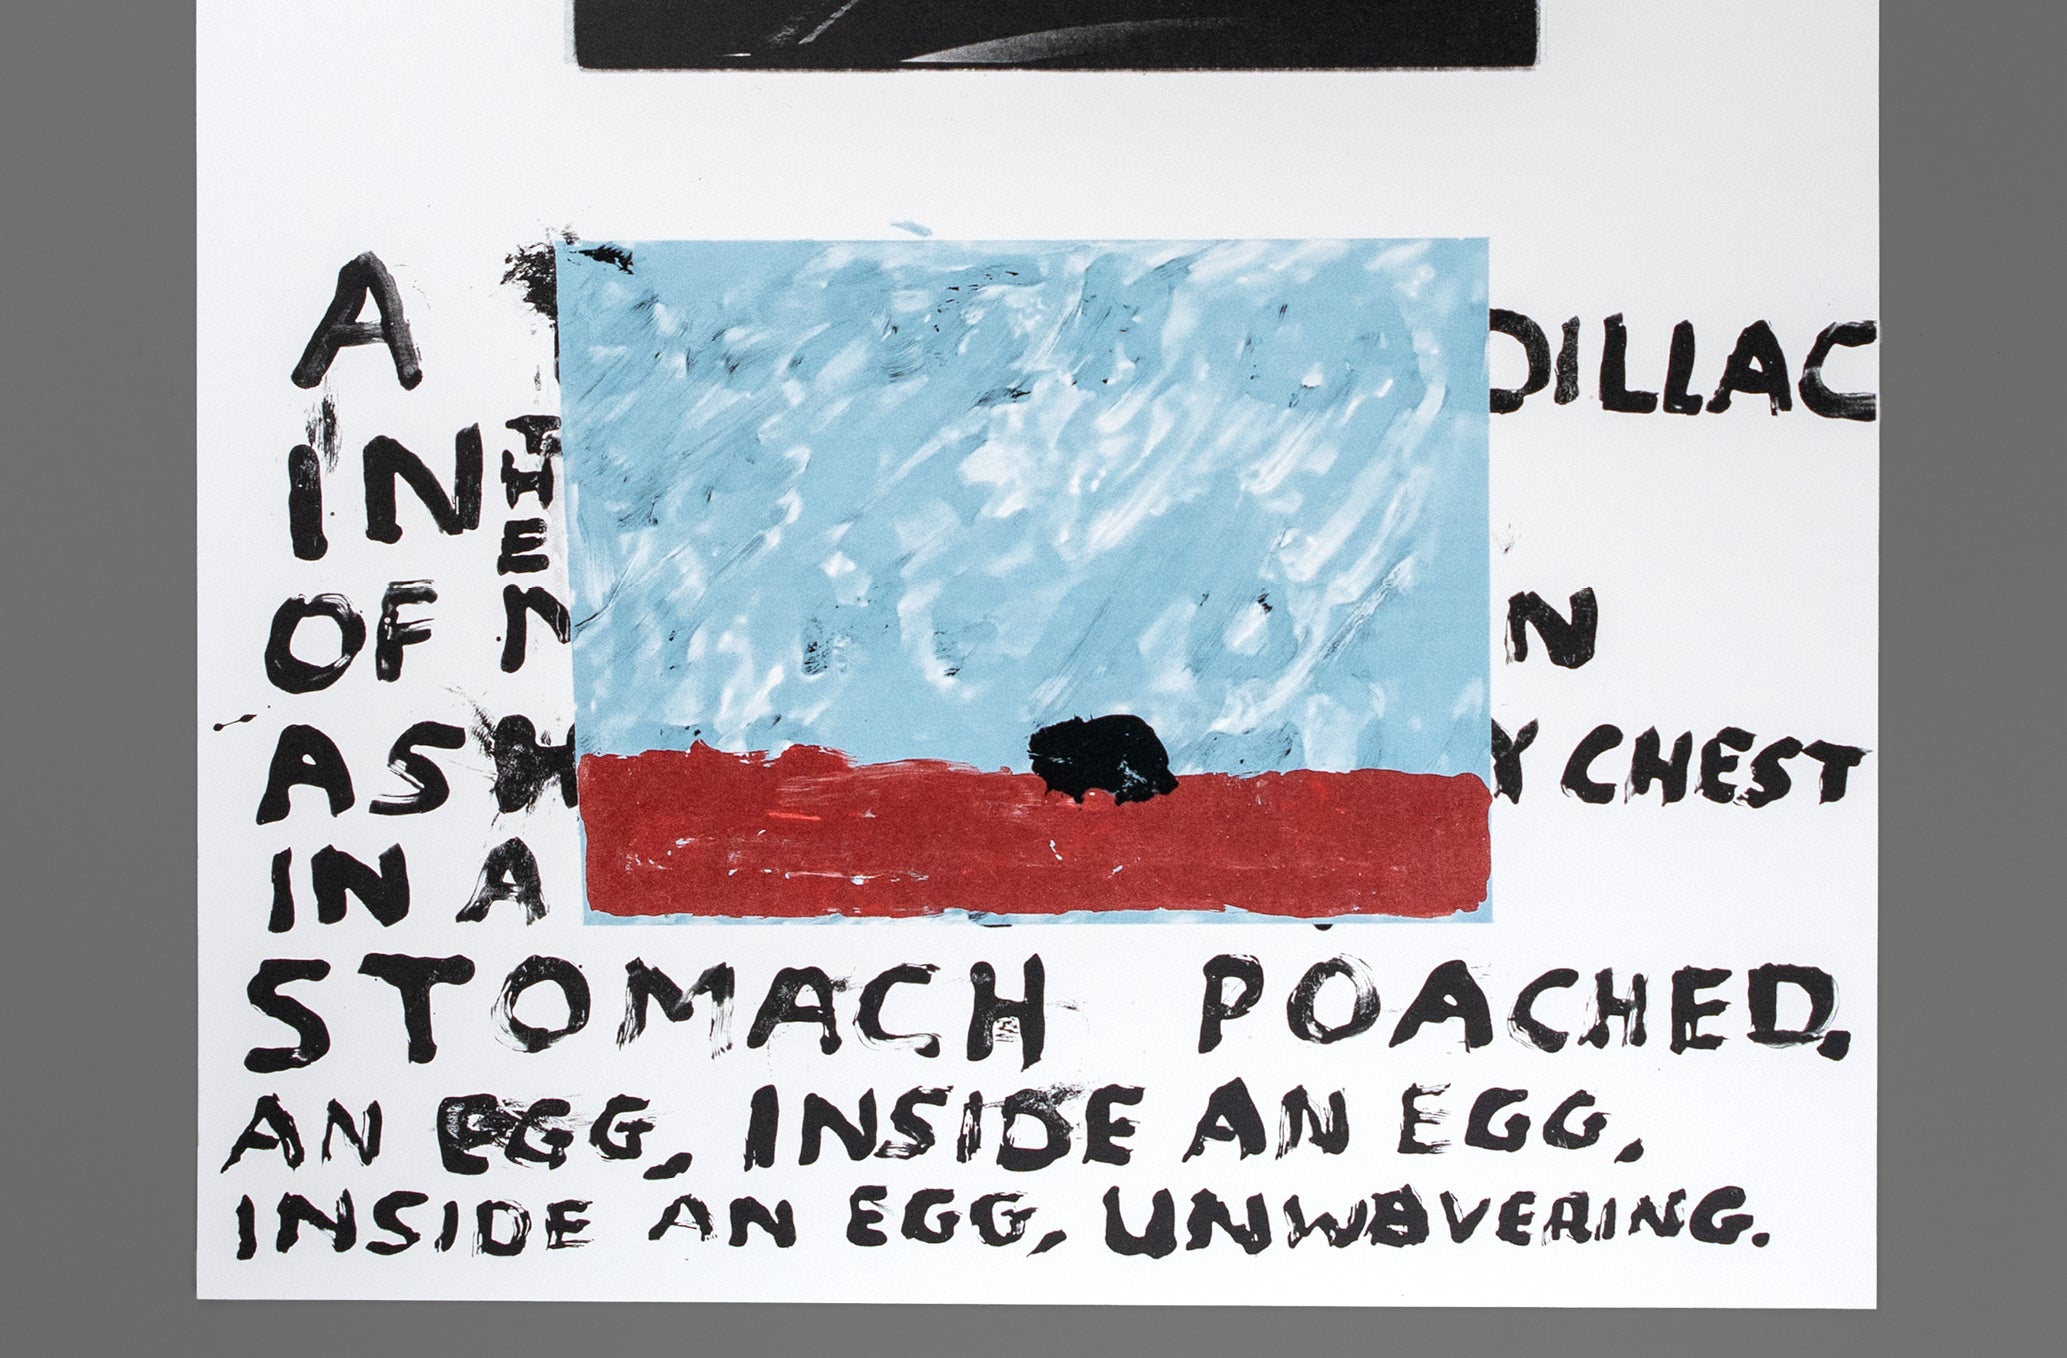 A DILLAC
IN THE
OF N N
ASH Y CHEST
IN A
STOMACH POACHED.
AN EGG, INSIDE AN EGG,
INSIDE AN EGG, UNWAVERING.